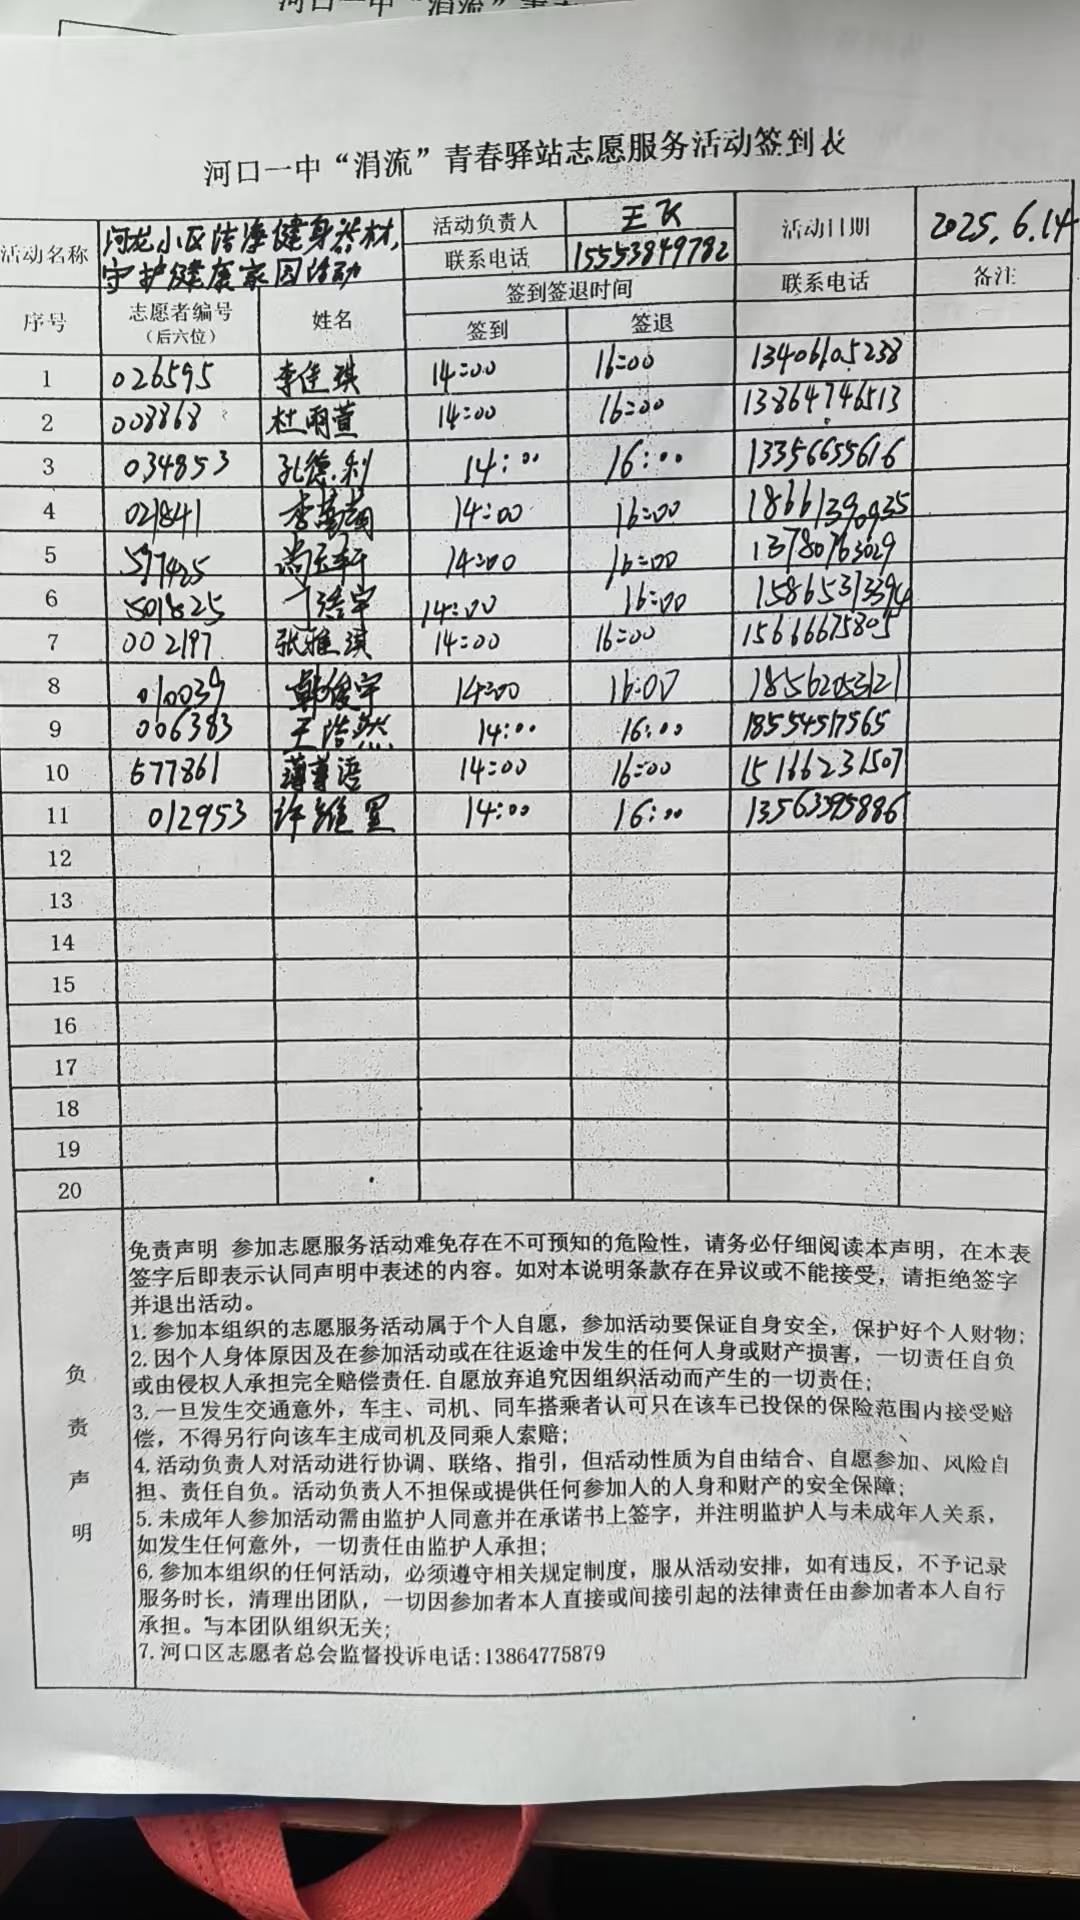 河口一中“涓流”青春驿站志愿服务活动签到表
活动名称 河龙小区洁净健身器材, 守护健康家园活动 活动负责人 王飞 活动日期 2025.6.14
联系电话 15553849782
序号 志愿者编号（后六位） 姓名 签到签退时间 联系电话 备注
签到 签退
1 026595 李佳琪 14:00 16:00 13406105238
2 008868 杜雨萱 14:00 16:00 13864746513
3 034853 孔德利 14:00 16:00 13356655616
4 021841 14:00 16:00 18661390935
5 597425 14:00 16:00 13780763029
6 501825 14:00 16:00 15865313394
7 002197 张雅琪 14:00 16:00 15666675805
8 010039 韩俊宇 14:00 16:00 18562053121
9 006383 王浩然 14:00 16:00 18554517565
10 577861 14:00 16:00 15166231507
11 012953 14:00 16:00 13563595886
12
13
14
15
16
17
18
19
20
负责声明
免责声明 参加志愿服务活动难免存在不可预知的危险性，请务必仔细阅读本声明，在本表
签字后即表示认同声明中表述的内容。如对本说明条款存在异议或不能接受，请拒绝签字
并退出活动。
1.参加本组织的志愿服务活动属于个人自愿，参加活动要保证自身安全，保护好个人财物;
2.因个人身体原因及在参加活动或在往返途中发生的任何人身或财产损害，一切责任自负
或由侵权人承担完全赔偿责任.自愿放弃追究因组织活动而产生的一切责任;
3.一旦发生交通意外，车主、司机、同车搭乘者认可只在该车已投保的保险范围内接受赔
偿，不得另行向该车主成司机及同乘人索赔;
4.活动负责人对活动进行协调、联络、指引，但活动性质为自由结合、自愿参加、风险自
担、责任自负。活动负责人不担保或提供任何参加人的人身和财产的安全保障;
5.未成年人参加活动需由监护人同意并在承诺书上签字，并注明监护人与未成年人关系，
如发生任何意外，一切责任由监护人承担;
6.参加本组织的任何活动，必须遵守相关规定制度，服从活动安排，如有违反，不予记录
服务时长，清理出团队，一切因参加者本人直接或间接引起的法律责任由参加者本人自行
承担。与本团队组织无关;
7.河口区志愿者总会监督投诉电话:13864775879